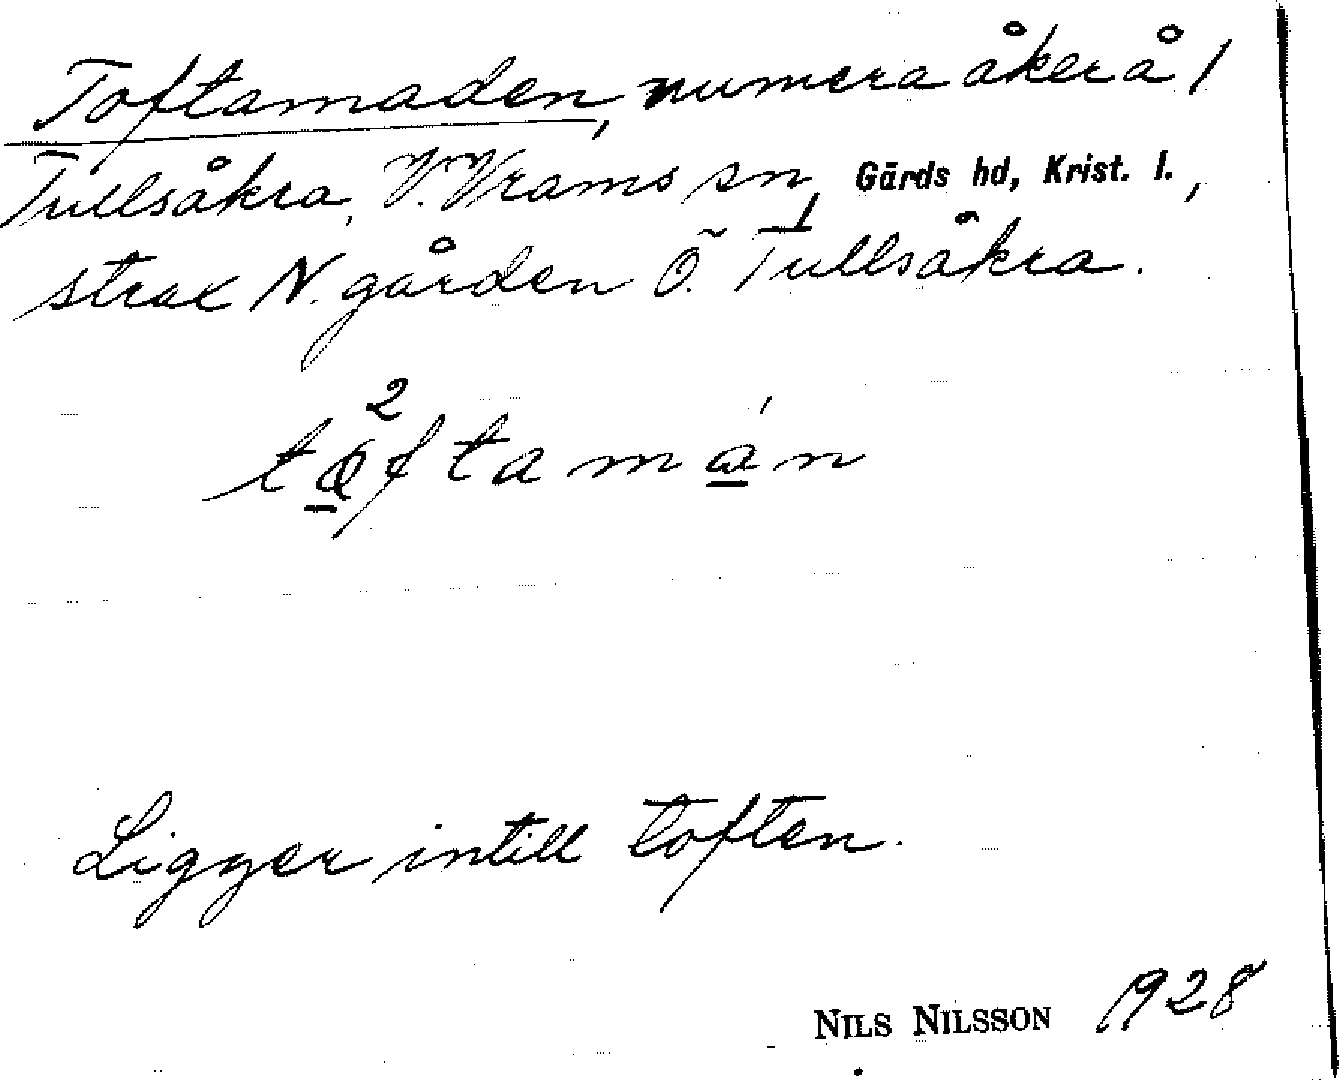 Toftamaden, numera åker å 1
Tullsåkra, V. Vrams sn, Gärds hd, Krist. l.,
strax N. gården Ö. Tullsåkra.
Ligger intill toften.
NILS NILSSON 1928